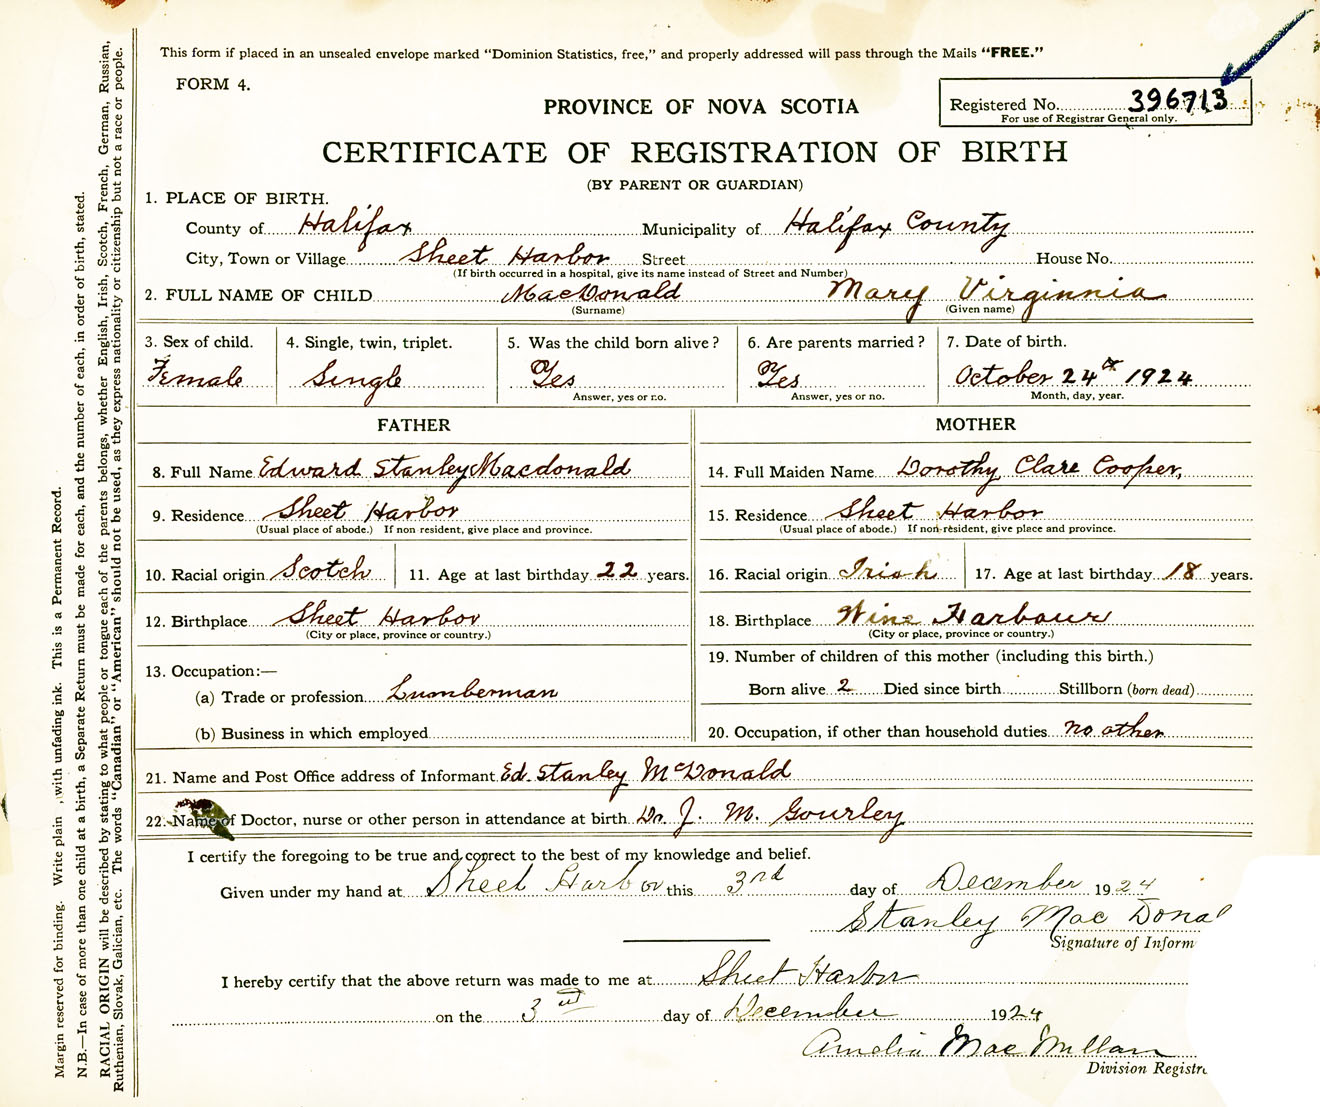 This form if placed in an unsealed envelope marked "Dominion Statistics, free," and properly addressed will pass through the Mails "FREE."
FORM 4.
PROVINCE OF NOVA SCOTIA
Registered No. 396713
For use of Registrar General only.
CERTIFICATE OF REGISTRATION OF BIRTH
(BY PARENT OR GUARDIAN)
1. PLACE OF BIRTH.
County of Halifax Municipality of Halifax County
City, Town or Village Sheet Harbor Street House No.
(If birth occurred in a hospital, give its name instead of Street and Number)
2. FULL NAME OF CHILD MacDonald Mary Virginnia
(Surname) (Given name)
3. Sex of child. 4. Single, twin, triplet. 5. Was the child born alive? 6. Are parents married? 7. Date of birth.
Female Single Yes Yes October 24th 1924
Answer, yes or no. Answer, yes or no. Month, day, year.
FATHER MOTHER
8. Full Name Edward Stanley Macdonald 14. Full Maiden Name Dorothy Clare Cooper,
9. Residence Sheet Harbor 15. Residence Sheet Harbor
(Usual place of abode.) If non resident, give place and province. (Usual place of abode.) If non-resident, give place and province.
10. Racial origin Scotch 11. Age at last birthday 22 years. 16. Racial origin Irish 17. Age at last birthday 18 years.
12. Birthplace Sheet Harbor 18. Birthplace Wine Harbour
(City or place, province or country.) (City or place, province or country.)
13. Occupation:— 19. Number of children of this mother (including this birth.)
(a) Trade or profession Lumberman Born alive 2 Died since birth Stillborn (born dead)
(b) Business in which employed 20. Occupation, if other than household duties no other
21. Name and Post Office address of Informant Ed. Stanley McDonald
22. Name of Doctor, nurse or other person in attendance at birth Dr. J. M. Gourley
I certify the foregoing to be true and correct to the best of my knowledge and belief.
Given under my hand at Sheet Harbor this 3rd day of December 1924
Stanley Mac Dona
Signature of Inform
I hereby certify that the above return was made to me at Sheet Harbor
on the 3rd day of December 1924
Amelia MacMillan
Division Registr
Margin reserved for binding. Write plain , with unfading ink. This is a Permanent Record.
N.B.—In case of more than one child at a birth, a Separate Return must be made for each, and the number of each, in order of birth, stated.
RACIAL ORIGIN will be described by stating to what people or tongue each of the parents belongs, whether English, Irish, Scotch, French, German, Russian,
Ruthenian, Slovak, Galician, etc. The words "Canadian" or "American" should not be used, as they express nationality or citizenship but not a race or people.